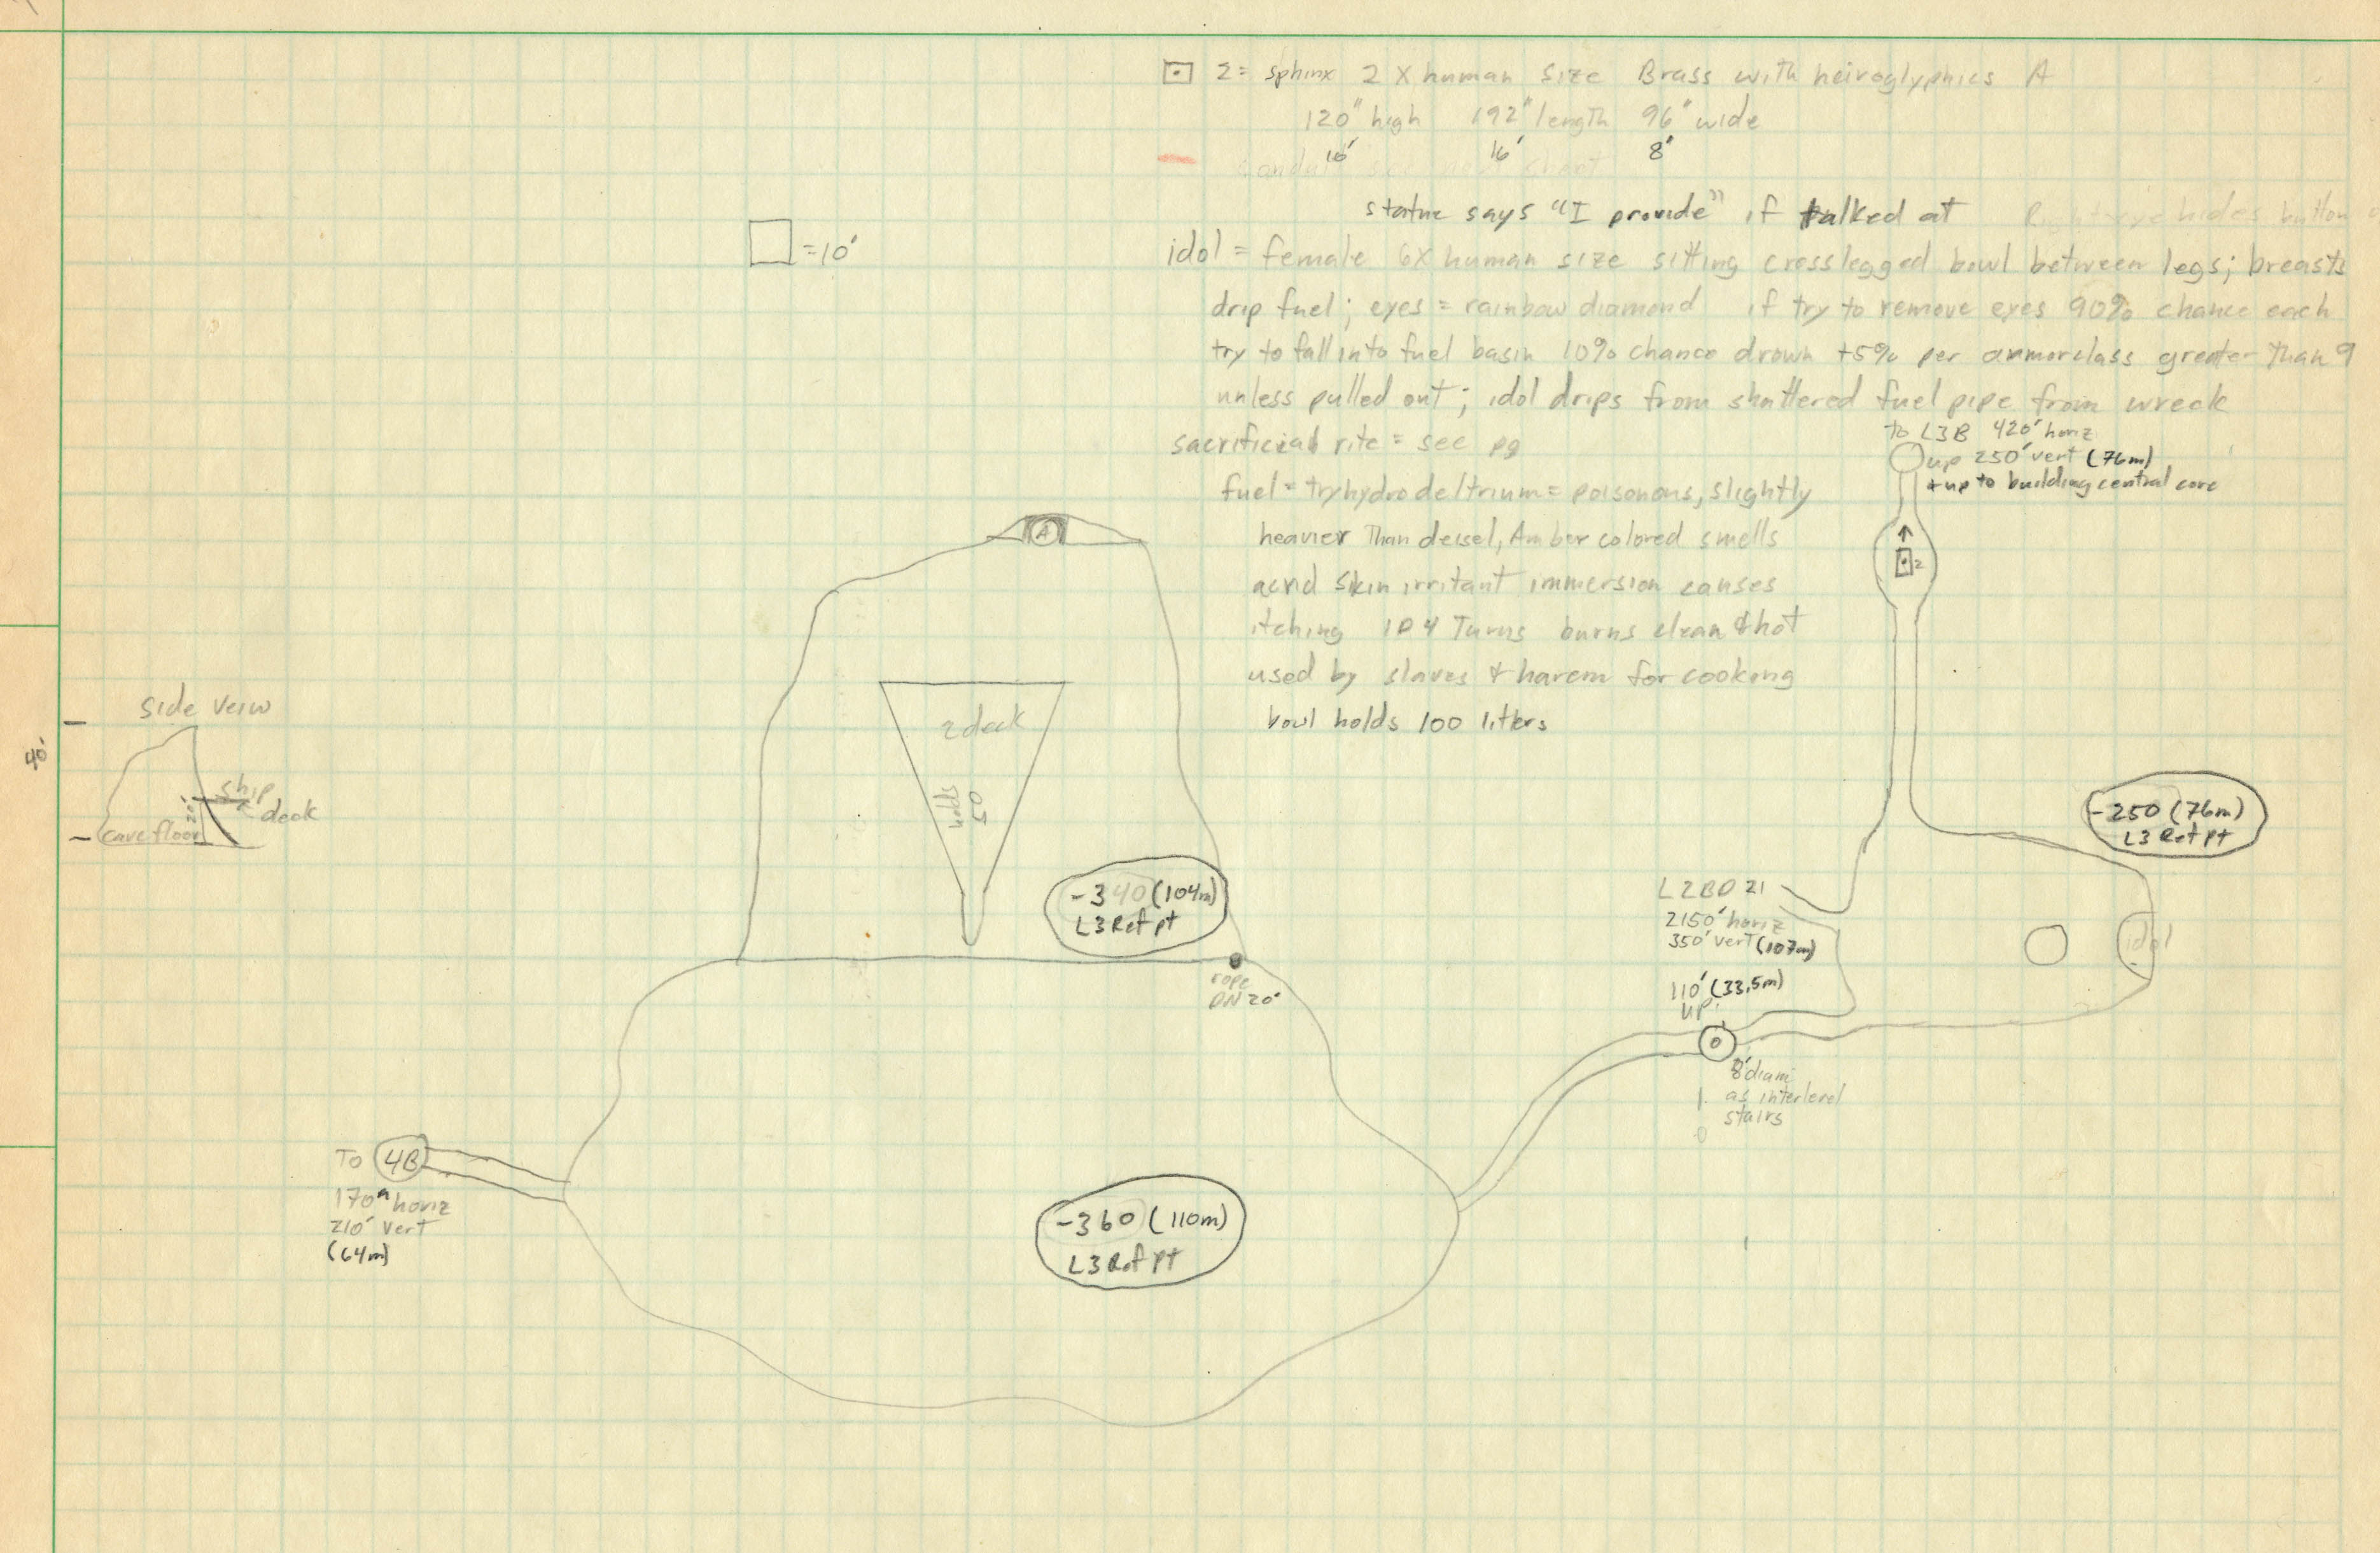 2 = sphinx 2 X human size Brass with heiroglyphics A
120" high 192" length 96" wide
10' 16' 8'
statue says "I provide" if talked at Right eye hides button
□ = 10'
idol = female 6X human size sitting crosslegged bowl between legs; breasts
drip fuel; eyes = rainbow diamond if try to remove eyes 90% chance each
try to fall into fuel basin 10% chance drown +5% per armorclass greater than 9
unless pulled out; idol drips from shattered fuel pipe from wreck
sacrificial rite = see pg
fuel = tryhydrodeltrium = poisonous, slightly
heavier Than deisel, Amber colored smells
acrid skin irritant immersion causes
itching 1D4 Turns burns clean & hot
used by slaves & harem for cooking
bowl holds 100 liters
to L3B 420' horiz
up 250' vert (76m)
+ up to building central core
2
A
2 deck
side veiw
40'
ship
deck
20'
cave floor
-340 (104m)
L3 Ref pt
rope
DN 20'
-250 (76m)
L3 Ref pt
L2BD 21
2150' horiz
350' vert (107m)
110' (33,5m)
up
idol
8' diam
as interlevel
stairs
To 4B
170' horiz
210' vert
(64m)
-360 (110m)
L3 Ref pt